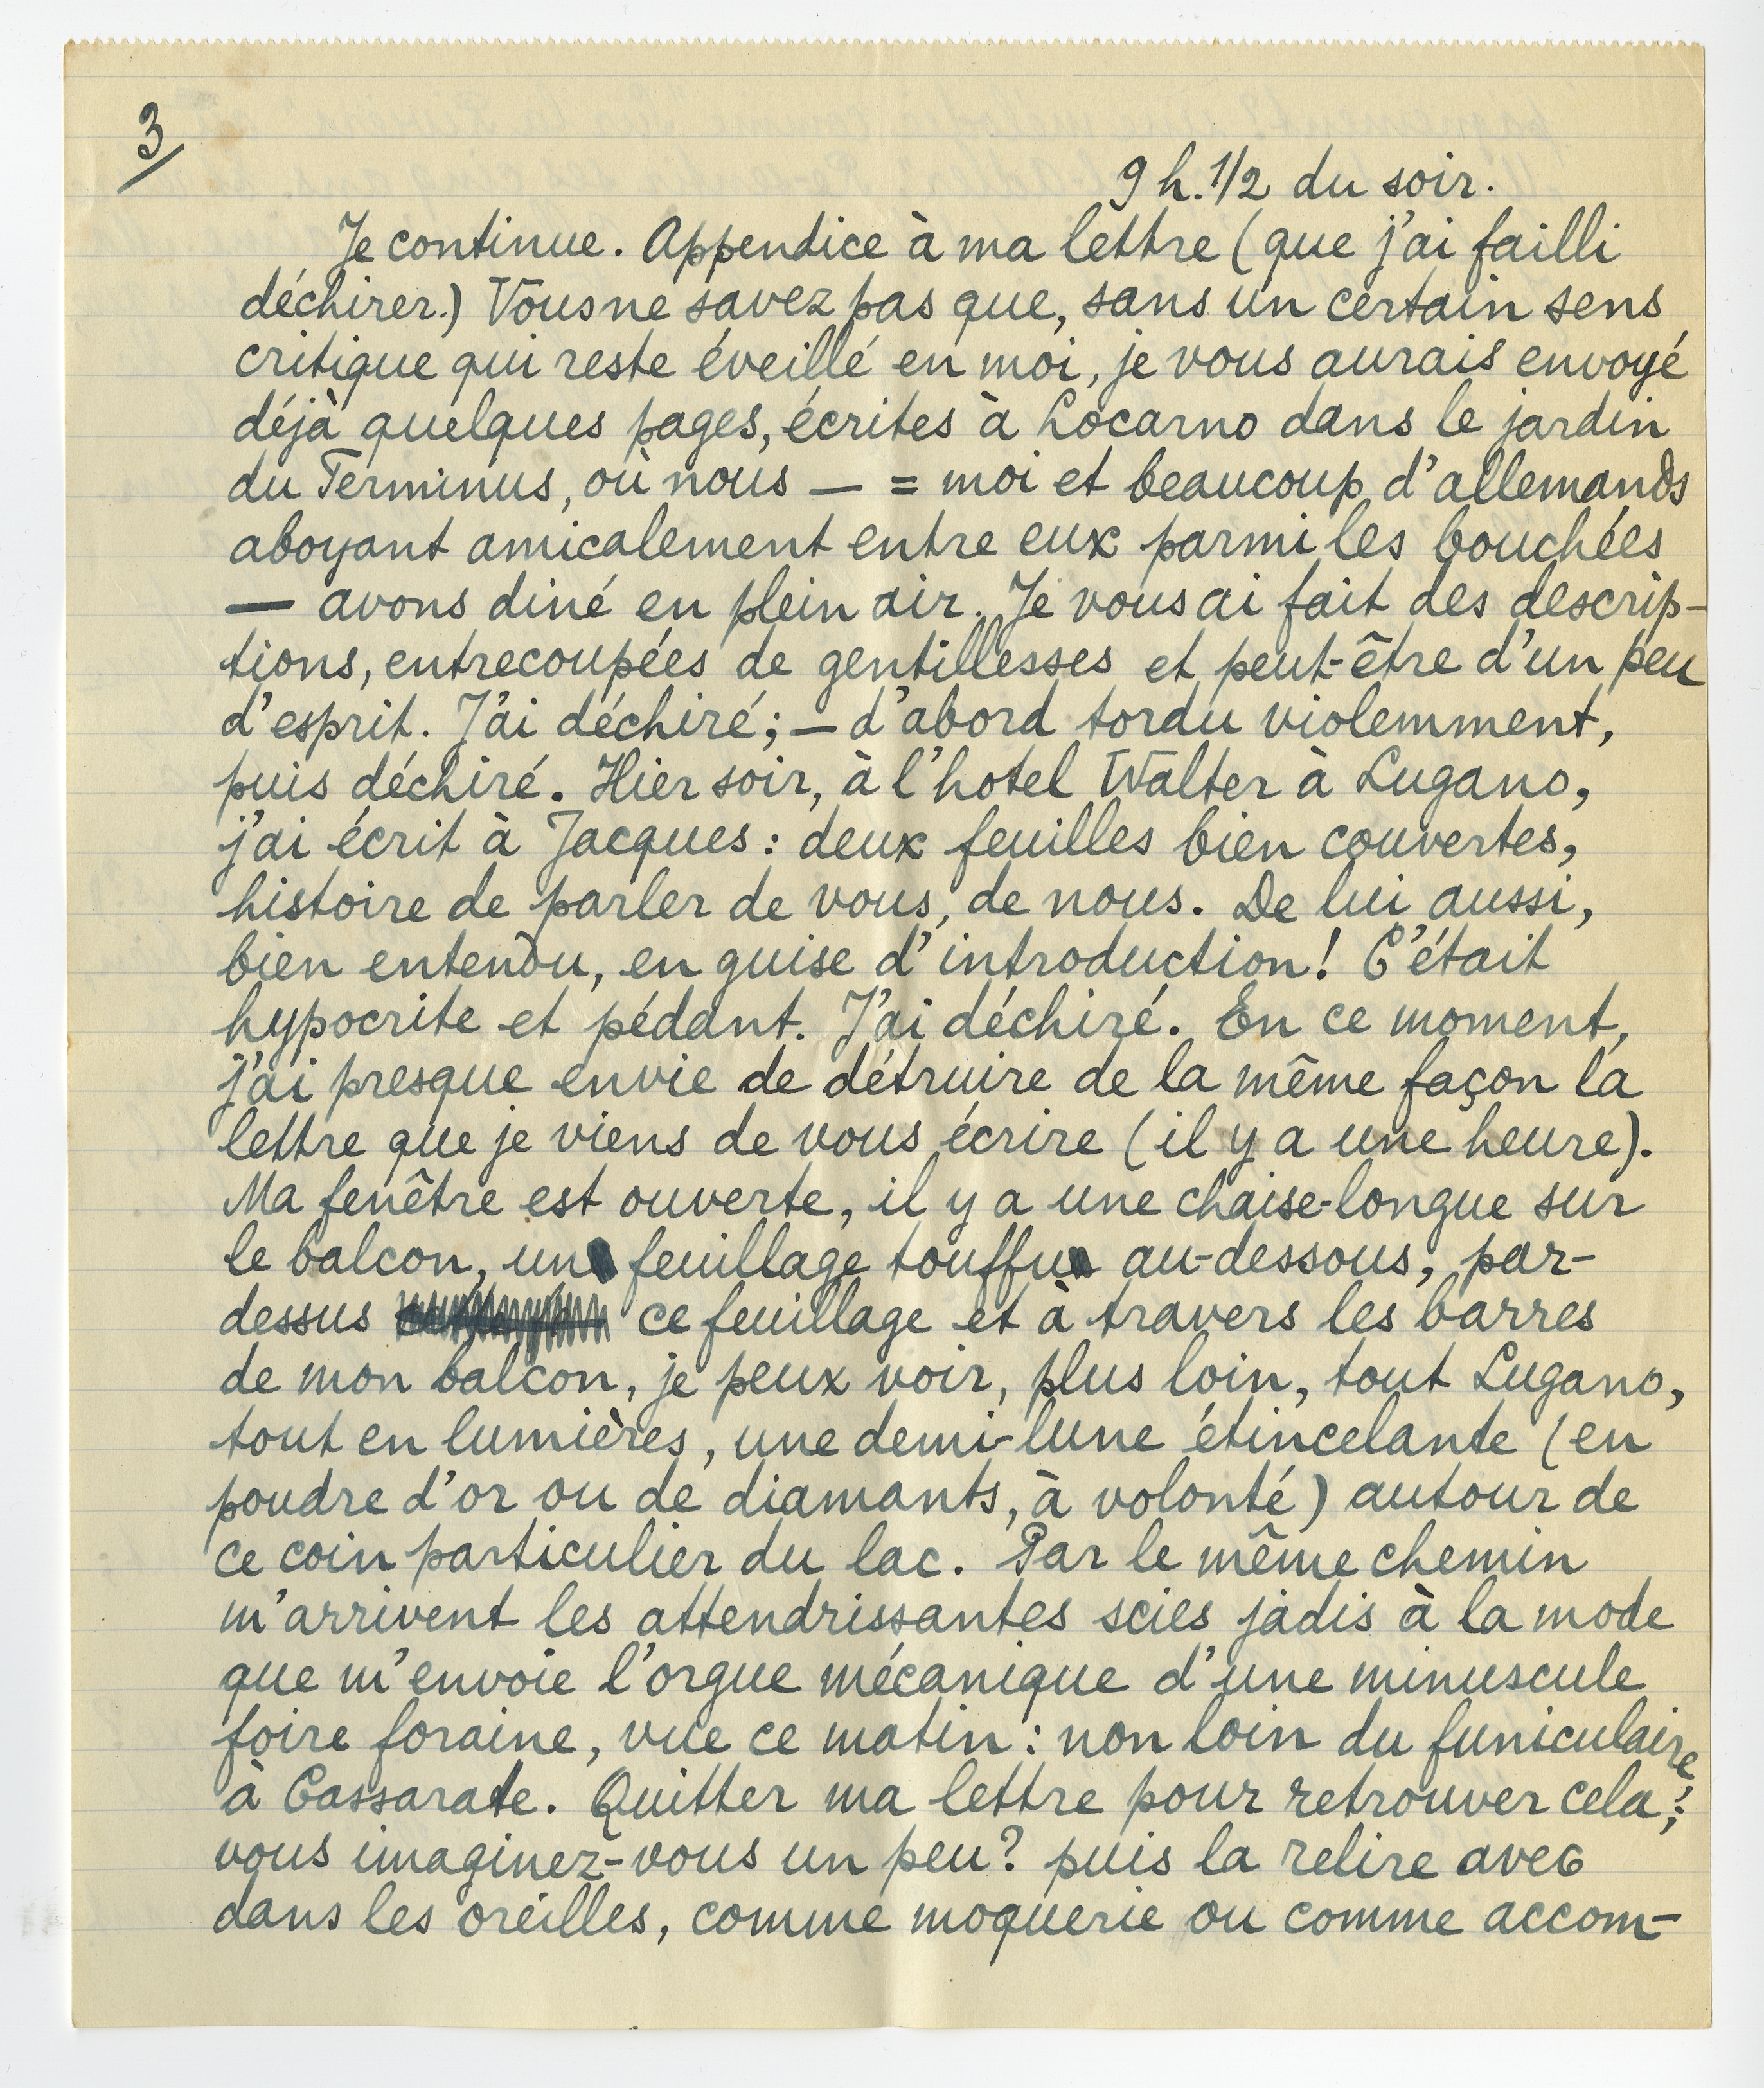 3
9 h. 1/2 du soir.
Je continue. Appendice à ma lettre (que j'ai failli
déchirer.) Vous ne savez pas que, sans un certain sens
critique qui reste éveillé en moi, je vous aurais envoyé
déjà quelques pages, écrites à Locarno dans le jardin
du Terminus, où nous — = moi et beaucoup d'allemands
aboyant amicalement entre eux parmi les bouchées
— avons diné en plein air. Je vous ai fait des descrip-
tions, entrecoupées de gentillesses et peut-être d'un peu
d'esprit. J'ai déchiré; — d'abord tordu violemment,
puis déchiré. Hier soir, à l'hotel Walter à Lugano,
j'ai écrit à Jacques : deux feuilles bien couvertes,
histoire de parler de vous, de nous. De lui aussi,
bien entendu, en guise d'introduction! C'était
hypocrite et pédant. J'ai déchiré. En ce moment,
j'ai presque envie de détruire de la même façon la
lettre que je viens de vous écrire (il y a une heure).
Ma fenêtre est ouverte, il y a une chaise-longue sur
le balcon, un feuillage touffu au-dessous, par-
dessus ce feuillage et à travers les barres
de mon balcon, je peux voir, plus loin, tout Lugano,
tout en lumières, une demi-lune étincelante (en
poudre d'or ou de diamants, à volonté) autour de
ce coin particulier du lac. Par le même chemin
m'arrivent les attendrissantes scies jadis à la mode
que m'envoie l'orgue mécanique d'une minuscule
foire foraine, vue ce matin : non loin du funiculaire
à Cassarate. Quitter ma lettre pour retrouver cela;
vous imaginez-vous un peu? puis la relire avec
dans les oreilles, comme moquerie ou comme accom-